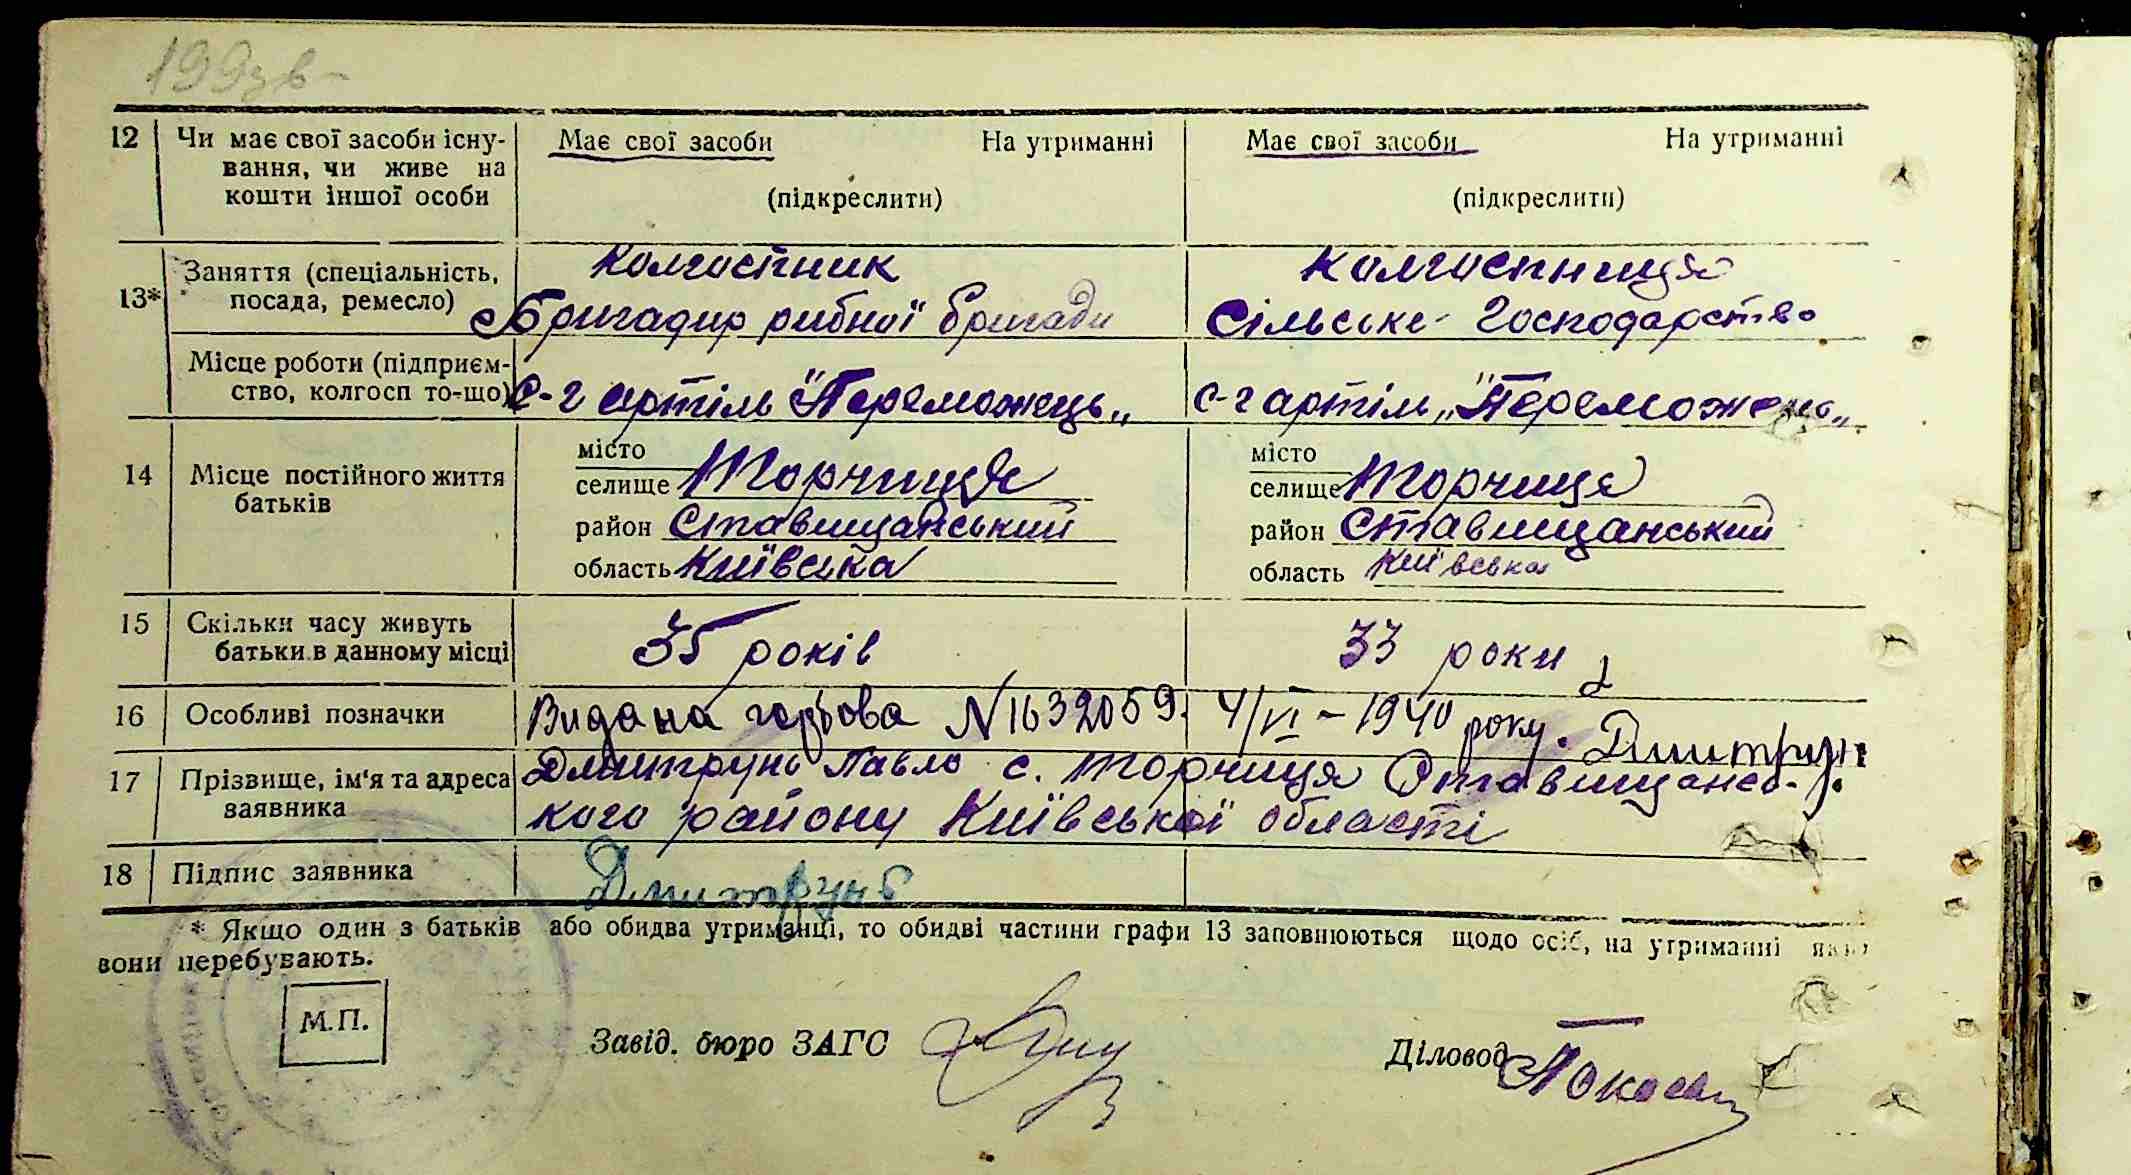 199зв
12 Чи має свої засоби існу- Має свої засоби На утриманні Має свої засоби На утриманні
вання, чи живе на
кошти іншої особи (підкреслити) (підкреслити)
13* Заняття (спеціальність, Колгоспник Колгоспниця
посада, ремесло) Бригадир рибної бригади Сільське-Господарство
Місце роботи (підприєм-
ство, колгосп то-що) С-г артіль "Переможець„ С-г артіль „Переможець„
14 Місце постійного життя місто місто
батьків селище Торчиця селище Торчиця
район Ставищанський район Ставищанський
область Київська область Київська
15 Скільки часу живуть
батьки в данному місці 35 років 33 роки
16 Особливі позначки Видана гербова N1632059. 4/VI-1940 року. Дмитрун
17 Прізвище, ім'я та адреса Дмитрунь Павло с. Торчиця Ставищансь-
заявника кого району Київської області
18 Підпис заявника Дмитрунь
* Якщо один з батьків або обидва утриманці, то обидві частини графи 13 заповнюються щодо осіб, на утриманні яких
вони перебувають.
М.П.
Завід. бюро ЗАГС Діловод